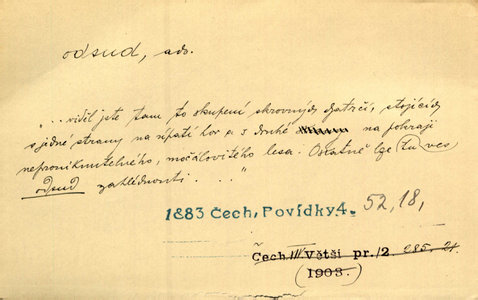 odsud, adv.
"...viděl jste tam to skupení skrovných chatrčí, stojících
s jedné strany na úpatí hor a s druhé na pokraji
neproniknutelného, močálovitého lesa. Ostatně lze tu ves
odsud zahlédnouti...."
1883 Čech, Povídky 4. 52, 18,
Čech. III Větší pr./2. 285, 21.
(1903.)